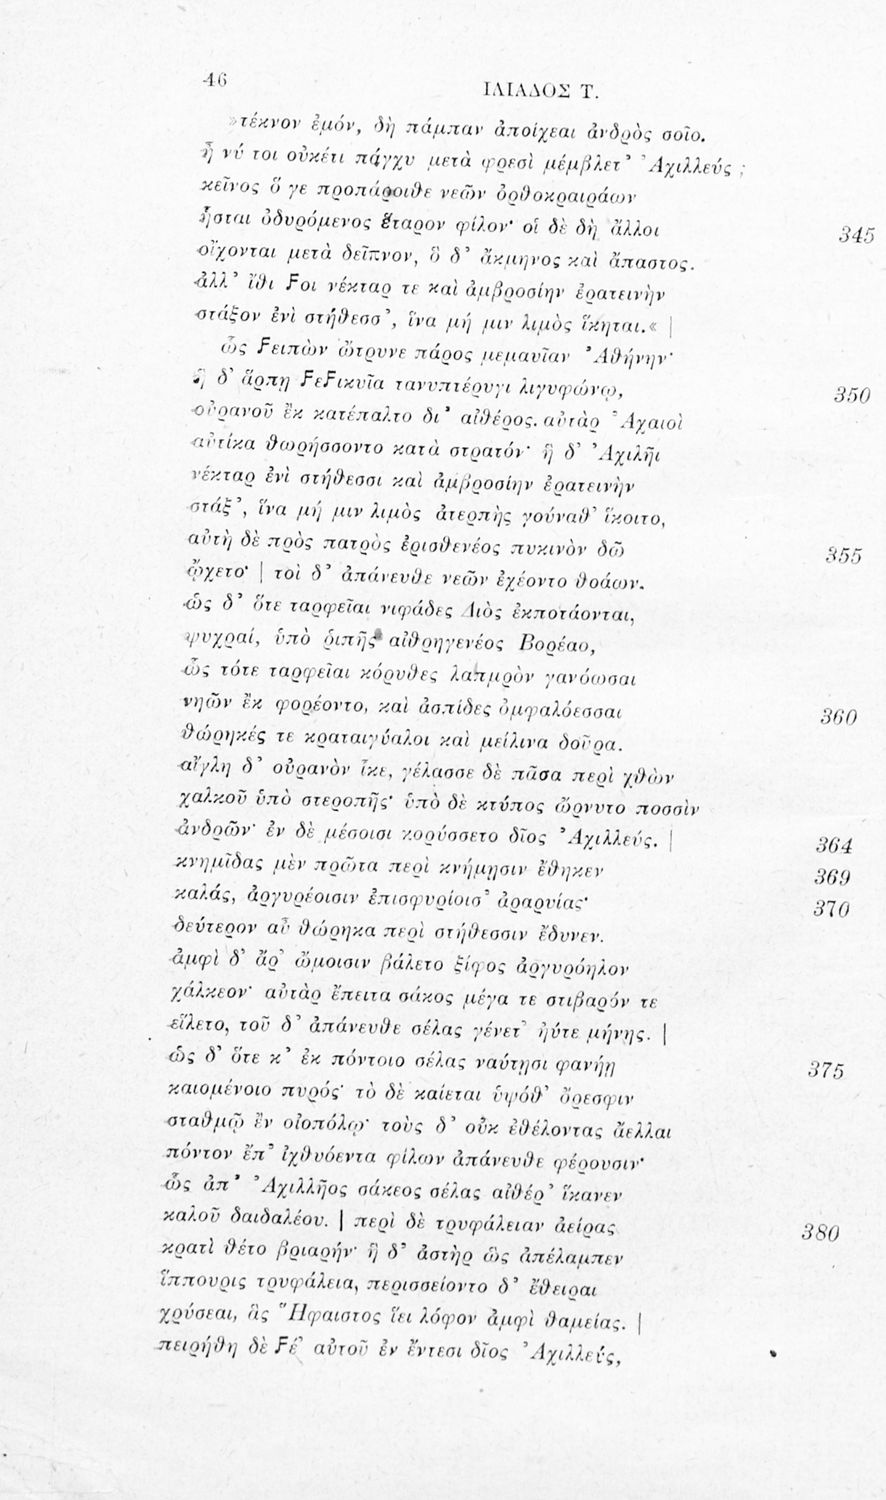 46
ΙΛΙΑΔΟΣ Τ.
»τέκνον ἐμόν, δὴ πάμπαν ἀποίχεαι ἀνδρὸς σοῖο.
ἦ νύ τοι οὐκέτι πάγχυ μετὰ φρεσὶ μέμβλετ’ Ἀχιλλεύς ;
κεῖνος ὅ γε προπάροιθε νεῶν ὀρθοκραιράων
ἧσται ὀδυρόμενος ἕταρον φίλον· οἱ δὲ δὴ ἄλλοι 345
οἴχονται μετὰ δεῖπνον, ὃ δ’ ἄκμηνος καὶ ἄπαστος.
ἀλλ’ ἴθι Ϝοι νέκταρ τε καὶ ἀμβροσίην ἐρατεινὴν
στάξον ἐνὶ στήθεσσ’, ἵνα μή μιν λιμὸς ἵκηται.« |
ὣς Ϝειπὼν ὤτρυνε πάρος μεμαυῖαν Ἀθήνην·
ἣ δ’ ἅρπῃ ϜεϜικυῖα τανυπτέρυγι λιγυφώνῳ, 350
οὐρανοῦ ἒκ κατέπαλτο δι’ αἰθέρος. αὐτὰρ Ἀχαιοὶ
αὐτίκα θωρήσσοντο κατὰ στρατόν· ἣ δ’ Ἀχιλῆι
νέκταρ ἐνὶ στήθεσσι καὶ ἀμβροσίην ἐρατεινὴν
στάξ’, ἵνα μή μιν λιμὸς ἀτερπὴς γούναθ’ ἵκοιτο,
αὐτὴ δὲ πρὸς πατρὸς ἐρισθενέος πυκινὸν δῶ 355
ᾤχετο· | τοὶ δ’ ἀπάνευθε νεῶν ἐχέοντο θοάων.
ὡς δ’ ὅτε ταρφεῖαι νιφάδες Διὸς ἐκποτάονται,
ψυχραί, ὑπὸ ῥιπῆς αἰθρηγενέος Βορέαο,
ὣς τότε ταρφεῖαι κόρυθες λαπμρὸν γανόωσαι
νηῶν ἒκ φορέοντο, καὶ ἀσπίδες ὀμφαλόεσσαι 360
θώρηκές τε κραταιγύαλοι καὶ μείλινα δοῦρα.
αἴγλη δ’ οὐρανὸν ἷκε, γέλασσε δὲ πᾶσα περὶ χθὼν
χαλκοῦ ὑπὸ στεροπῆς· ὑπὸ δὲ κτύπος ὤρνυτο ποσσὶν
ἀνδρῶν· ἐν δὲ μέσοισι κορύσσετο δῖος Ἀχιλλεύς. | 364
κνημῖδας μὲν πρῶτα περὶ κνήμῃσιν ἔθηκεν 369
καλάς, ἀργυρέοισιν ἐπισφυρίοισ’ ἀραρυίας· 370
δεύτερον αὖ θώρηκα περὶ στήθεσσιν ἔδυνεν.
ἀμφὶ δ’ ἄρ’ ὤμοισιν βάλετο ξίφος ἀργυρόηλον
χάλκεον· αὐτὰρ ἔπειτα σάκος μέγα τε στιβαρόν τε
εἵλετο, τοῦ δ’ ἀπάνευθε σέλας γένετ’ ἠύτε μήνης. |
ὡς δ’ ὅτε κ’ ἐκ πόντοιο σέλας ναύτῃσι φανήῃ 375
καιομένοιο πυρός· τὸ δὲ καίεται ὑψόθ’ ὄρεσφιν
σταθμῷ ἒν οἰοπόλῳ· τοὺς δ’ οὐκ ἐθέλοντας ἄελλαι
πόντον ἔπ’ ἰχθυόεντα φίλων ἀπάνευθε φέρουσιν·
ὣς ἀπ’ Ἀχιλλῆος σάκεος σέλας αἰθέρ’ ἵκανεν
καλοῦ δαιδαλέου. | περὶ δὲ τρυφάλειαν ἀείρας 380
κρατὶ θέτο βριαρήν· ἣ δ’ ἀστὴρ ὣς ἀπέλαμπεν
ἵππουρις τρυφάλεια, περισσείοντο δ’ ἔθειραι
χρύσεαι, ἃς Ἥφαιστος ἵει λόφον ἀμφὶ θαμείας. |
πειρήθη δὲ Ϝέ’ αὐτοῦ ἐν ἔντεσι δῖος Ἀχιλλεύς,